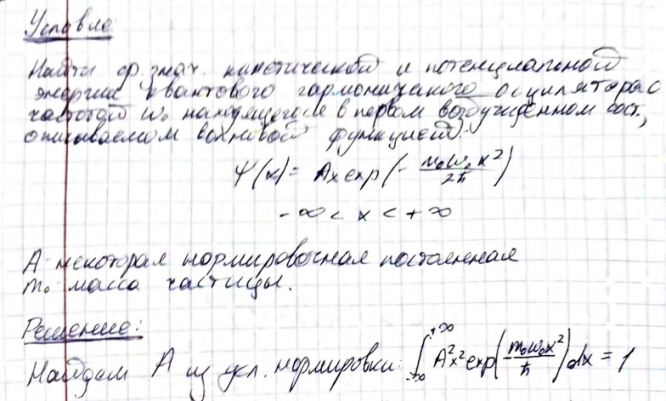 Условие
Найти ср. знач. кинетической и потенциальной
энергии квантового гармонического осцилятора с
частотой ω₀ находящегося в первом возбужденном сост.,
описываемом волновой функцией:
Ψ(x) = Ax exp(- m₀ω₀x²/2ħ)
-∞ < x < +∞
A некоторая нормировочная постоянная
m₀ масса частицы.
Решение:
Найдем A из усл. нормировки: ∫₋∞⁺∞ A²x² exp(-m₀ω₀x²/ħ)dx = 1